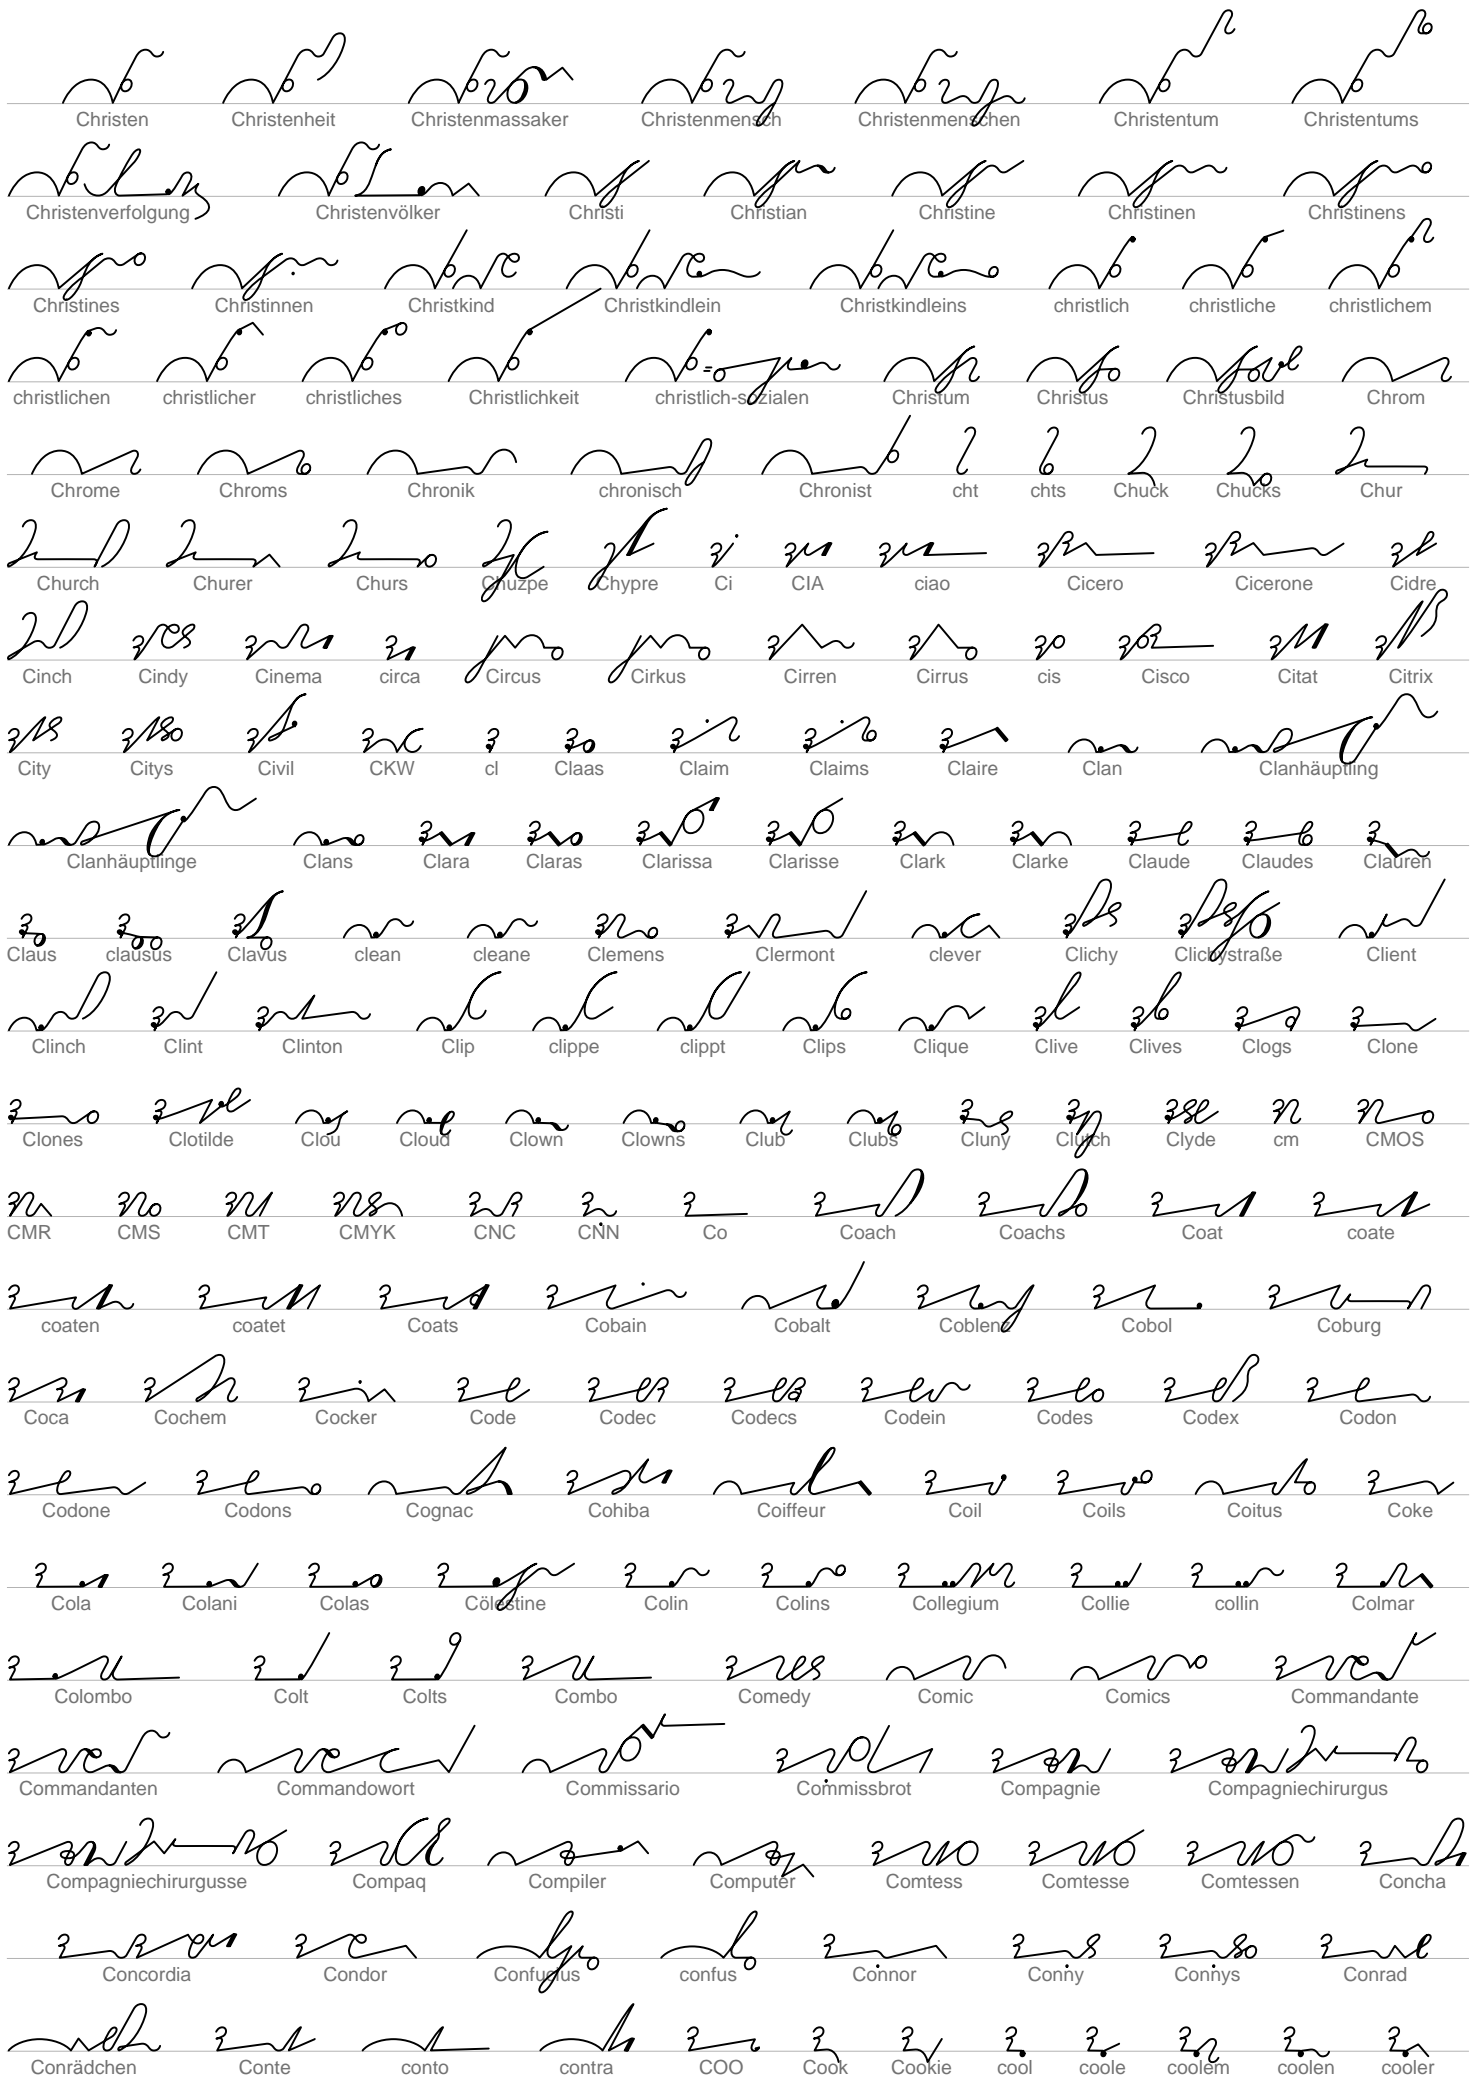 Christen Christenheit Christenmassaker Christenmensch Christenmenschen Christentum Christentums
Christenverfolgung Christenvölker Christi Christian Christine Christinen Christinens
Christines Christinnen Christkind Christkindlein Christkindleins christlich christliche christlichem
christlichen christlicher christliches Christlichkeit christlich-sozialen Christum Christus Christusbild Chrom
Chrome Chroms Chronik chronisch Chronist cht chts Chuck Chucks Chur
Church Churer Churs Chuzpe Chypre Ci CIA ciao Cicero Cicerone Cidre
Cinch Cindy Cinema circa Circus Cirkus Cirren Cirrus cis Cisco Citat Citrix
City Citys Civil CKW cl Claas Claim Claims Claire Clan Clanhäuptling
Clanhäuptlinge Clans Clara Claras Clarissa Clarisse Clark Clarke Claude Claudes Clauren
Claus clausus Clavus clean cleane Clemens Clermont clever Clichy Clichystraße Client
Clinch Clint Clinton Clip clippe clippt Clips Clique Clive Clives Clogs Clone
Clones Clotilde Clou Cloud Clown Clowns Club Clubs Cluny Clutch Clyde cm CMOS
CMR CMS CMT CMYK CNC CNN Co Coach Coachs Coat coate
coaten coatet Coats Cobain Cobalt Coblenz Cobol Coburg
Coca Cochem Cocker Code Codec Codecs Codein Codes Codex Codon
Codone Codons Cognac Cohiba Coiffeur Coil Coils Coitus Coke
Cola Colani Colas Cölestine Colin Colins Collegium Collie collin Colmar
Colombo Colt Colts Combo Comedy Comic Comics Commandante
Commandanten Commandowort Commissario Commissbrot Compagnie Compagniechirurgus
Compagniechirurgusse Compaq Compiler Computer Comtess Comtesse Comtessen Concha
Concordia Condor Confucius confus Connor Conny Connys Conrad
Conrädchen Conte conto contra COO Cook Cookie cool coole coolem coolen cooler